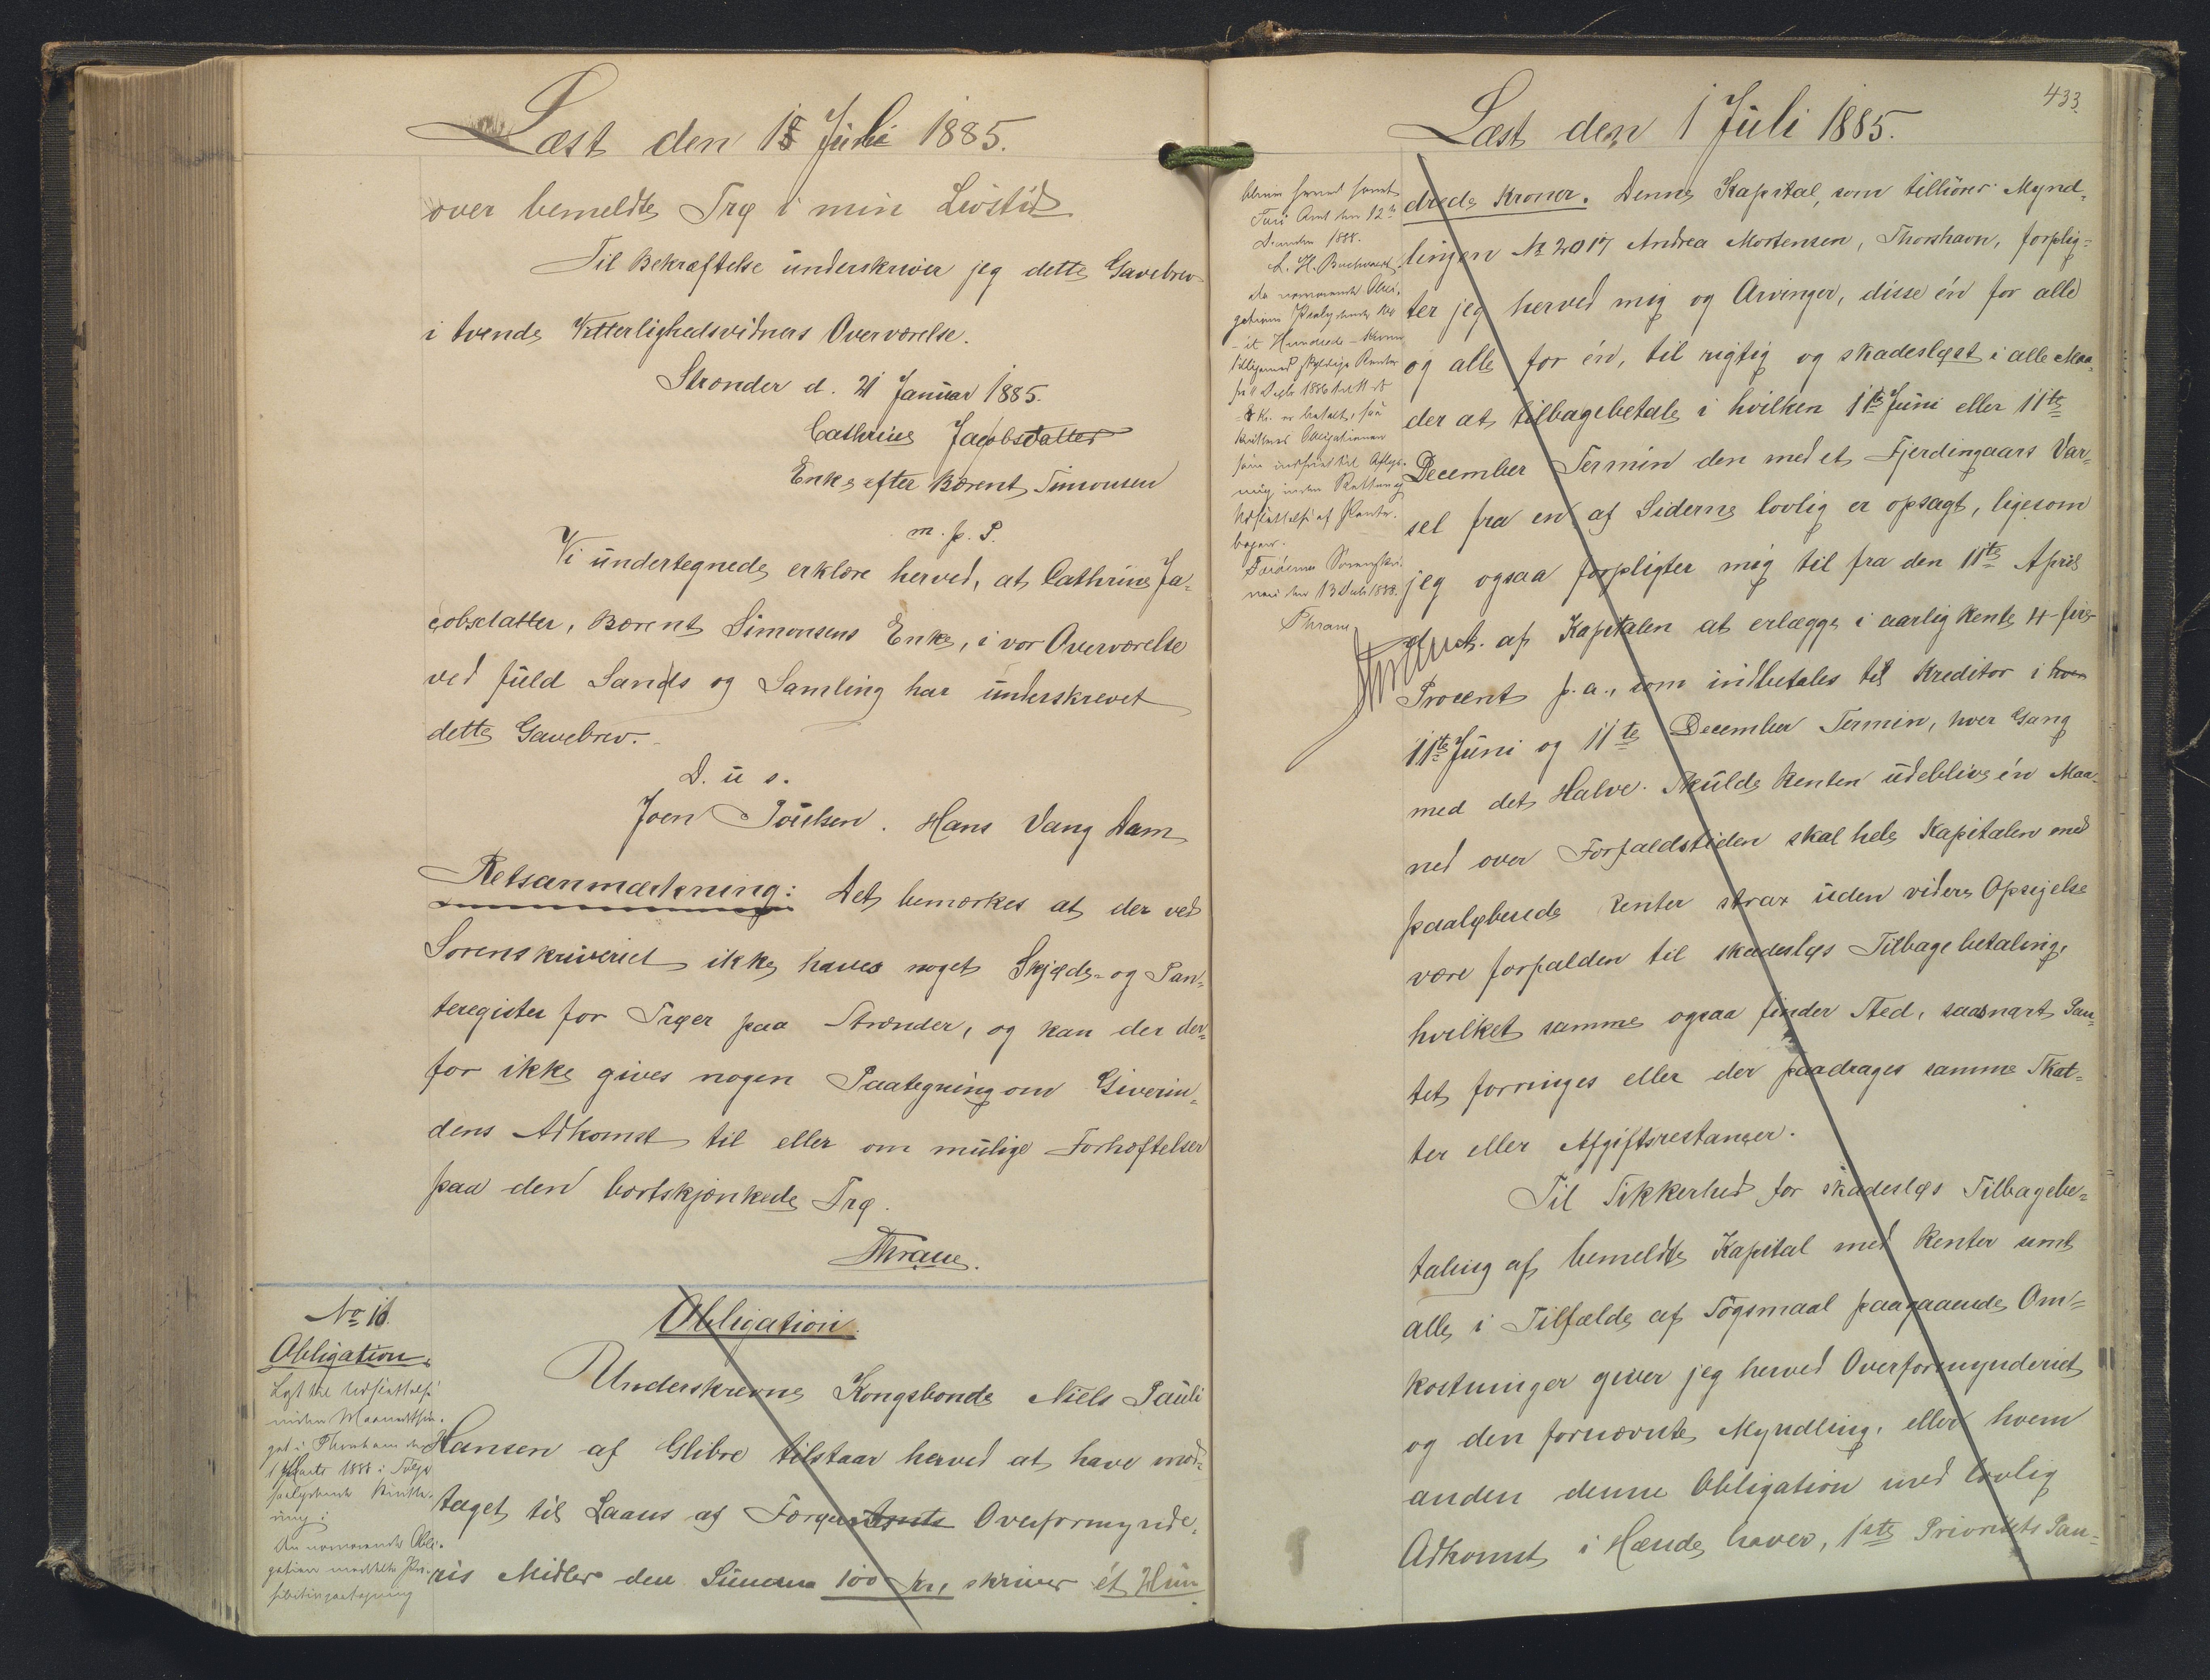 Læst den 1 Juli 1885.
over bemeldte Trø i min Livstid
Til Bekræftelse underskriver jeg dette Gavebrev
i tvende Vitterlighedsvidners Overværelse.
Strænder d. 21 Januar 1885.
Cathrine Jacobsdatter
Enke efter Bærent Simonsen
m. p. P.
Vi undertegnede erklære herved, at Cathrine Ja-
cobsdatter, Bærent Simonsens Enke, i vor Overværelse
ved fuld Sands og Samling har underskrevet
dette Gavebrev.
D. u s.
Joen Poulsen. Hans Vang Dam
Retsanmærkning: Det bemærkes at der ved
Sorenskriveriet ikke haves noget Skjøde- og Pan-
teregister for Trøer paa Strænder, og kan der der-
for ikke gives nogen Paategning om Giverin-
dens Adkomst til eller om mulige Forhæftelser
paa den bortskjænkede Trø.
Thrane.
No 16.
Obligation.
Obligation.
Underskrevne Kongsbonde Niels Pauli
Hansen af Glibre tilstaar herved at have mod-
taget til Laans af Færø Amts Overformynde-
ris Midler den Summa 100 Kr, skriver ét Hun
433
Læst den 1 Juli 1885.
drede Kroner. Denne Kapital, som tilhører Mynd-
lingen No 2017 Andrea Mortensen, Thorshavn, forplig-
ter jeg herved mig og Arvinger, disse én for alle
og alle for én, til rigtig og skadesløst i alle Maa-
der at tilbagebetale i hvilken 11te Juni eller 11te
December Termin den med et Fjerdingaars Var-
sel fra en af Siderne lovlig er opsagt, ligesom
jeg ogsaa forpligter mig til fra den 11te April
d. A. af Kapitalen at erlægge i aarlig Rente 4 - fire
Procent p. a., som indbetales til Kreditor i hver
11te Juni og 11te December Termin, hver Gang
med det Halve. Skulde Renten udeblive én Maa-
ned over Forfaldstiden skal hele Kapitalen med
paaløbende Renter strax uden videre Opsigelse
være forfalden til skadesløs Tilbagebetaling,
hvilket samme ogsaa finder Sted, saasnart Pan-
tet forringes eller der paadrages samme Skat-
ter eller Afgiftsrestancer.
Til Sikkerhed for skadesløs Tilbagebe-
taling af bemeldte Kapital med Renter samt
alle i Tilfælde af Søgsmaal paagaaende Om-
kostninger giver jeg herved Overformynderiet
og den fornævnte Myndling, eller hvem
anden denne Obligation med lovlig
Adkomst i Hænde haver, 1ste Prioritets Pan-
L. H. Buchwaldt
den 13 Decbr 1888.
Thrane